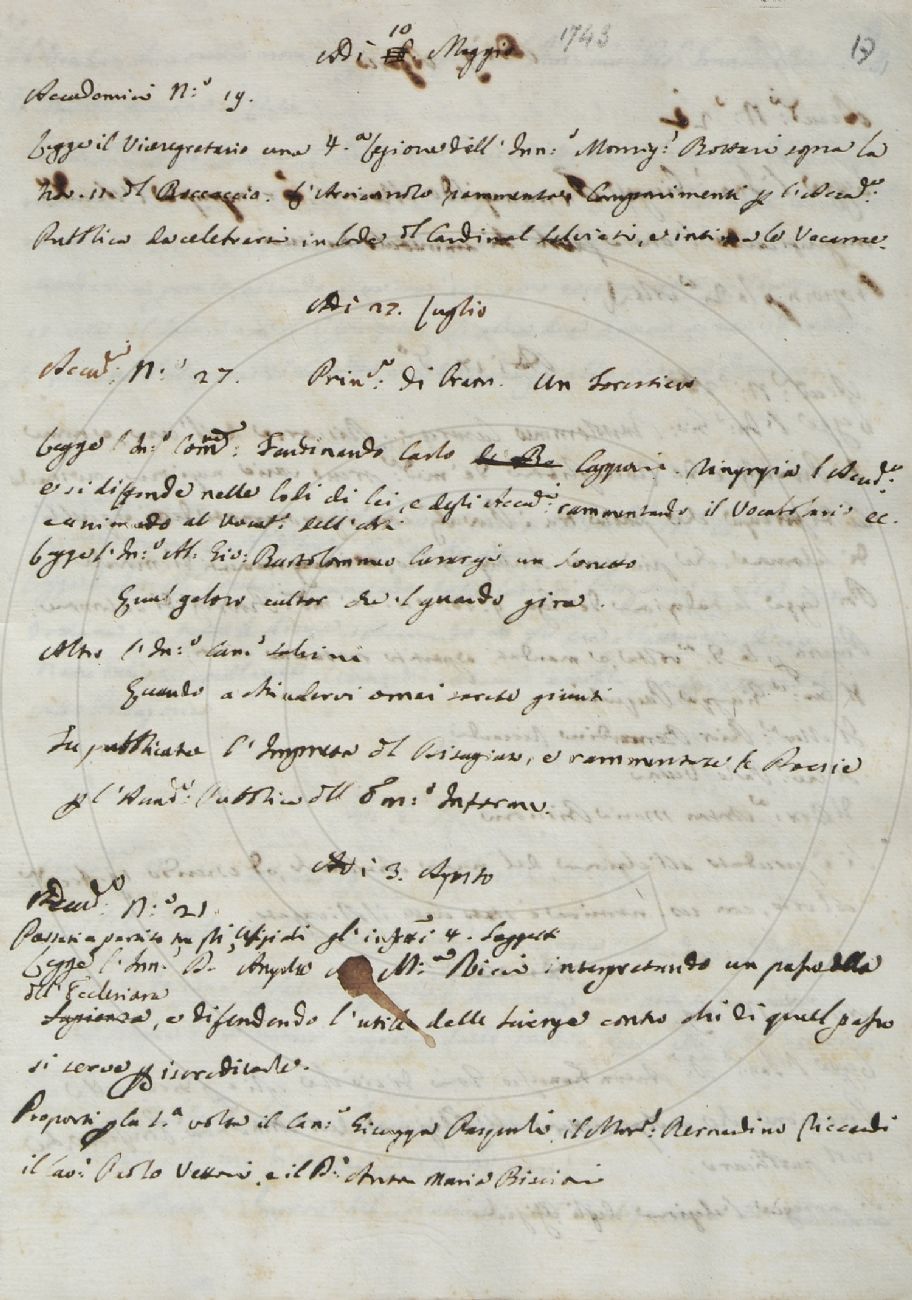 10
1743
Adi Maggio
19
Accademici N.o 19.
Legge il Vicesegretario una 4.a Lezione dell'Inn.o Monsig.r Bottari sopra la
Nov. del Boccaccio. L'Arciconsolo rammenta i Componimenti p l'Accad.a
Pubblica da celebrarsi in lode del Cardinal Salviati, e intima le Vacanze.
Adi 27. Luglio
Accad.i N.o 27. Prin.o di Un Forestiero
Legge l'In.o Comm.e Ferdinando Carlo Capponi. Ringrazia l'Accad.a
e si diffonde nelle lodi di lei, e degli Accad.i rammentando il Vocabolario ec.
e animando al Vocab.o dell'Arti
Legge l'In.o Ab. Gio: Bartolommeo Casaregi un Sonetto
Qual geloso cultor che 'l guardo gira.
Altro l'In.o Can.o Salvini
Quando a chiudervi omai sarete giunti
Fu pubblicata l'Impresa del , e rammentate le Poesie
p l'Accad.a Pubblica dell' Em.o Inferm.
Adi 3. Agosto
Accad.i N.o 21.
Passati a partito tra gli Ufizi di gl'infratti 4. Soggetti
Legge l'Inn.o D.r Angelo M.a Ricci interpretando un passo della
dell'Ecclesiaste
Sapienza, e difendendo l'utile delle Scienze contro chi di quel passo
si serve p iscreditarle.
Proposti p la 1.a volta il Can.o Giuseppe il March.e Bernardino Riccardi
il Cav.r Paolo Vettori, e il D.r Anton Maria Biscioni